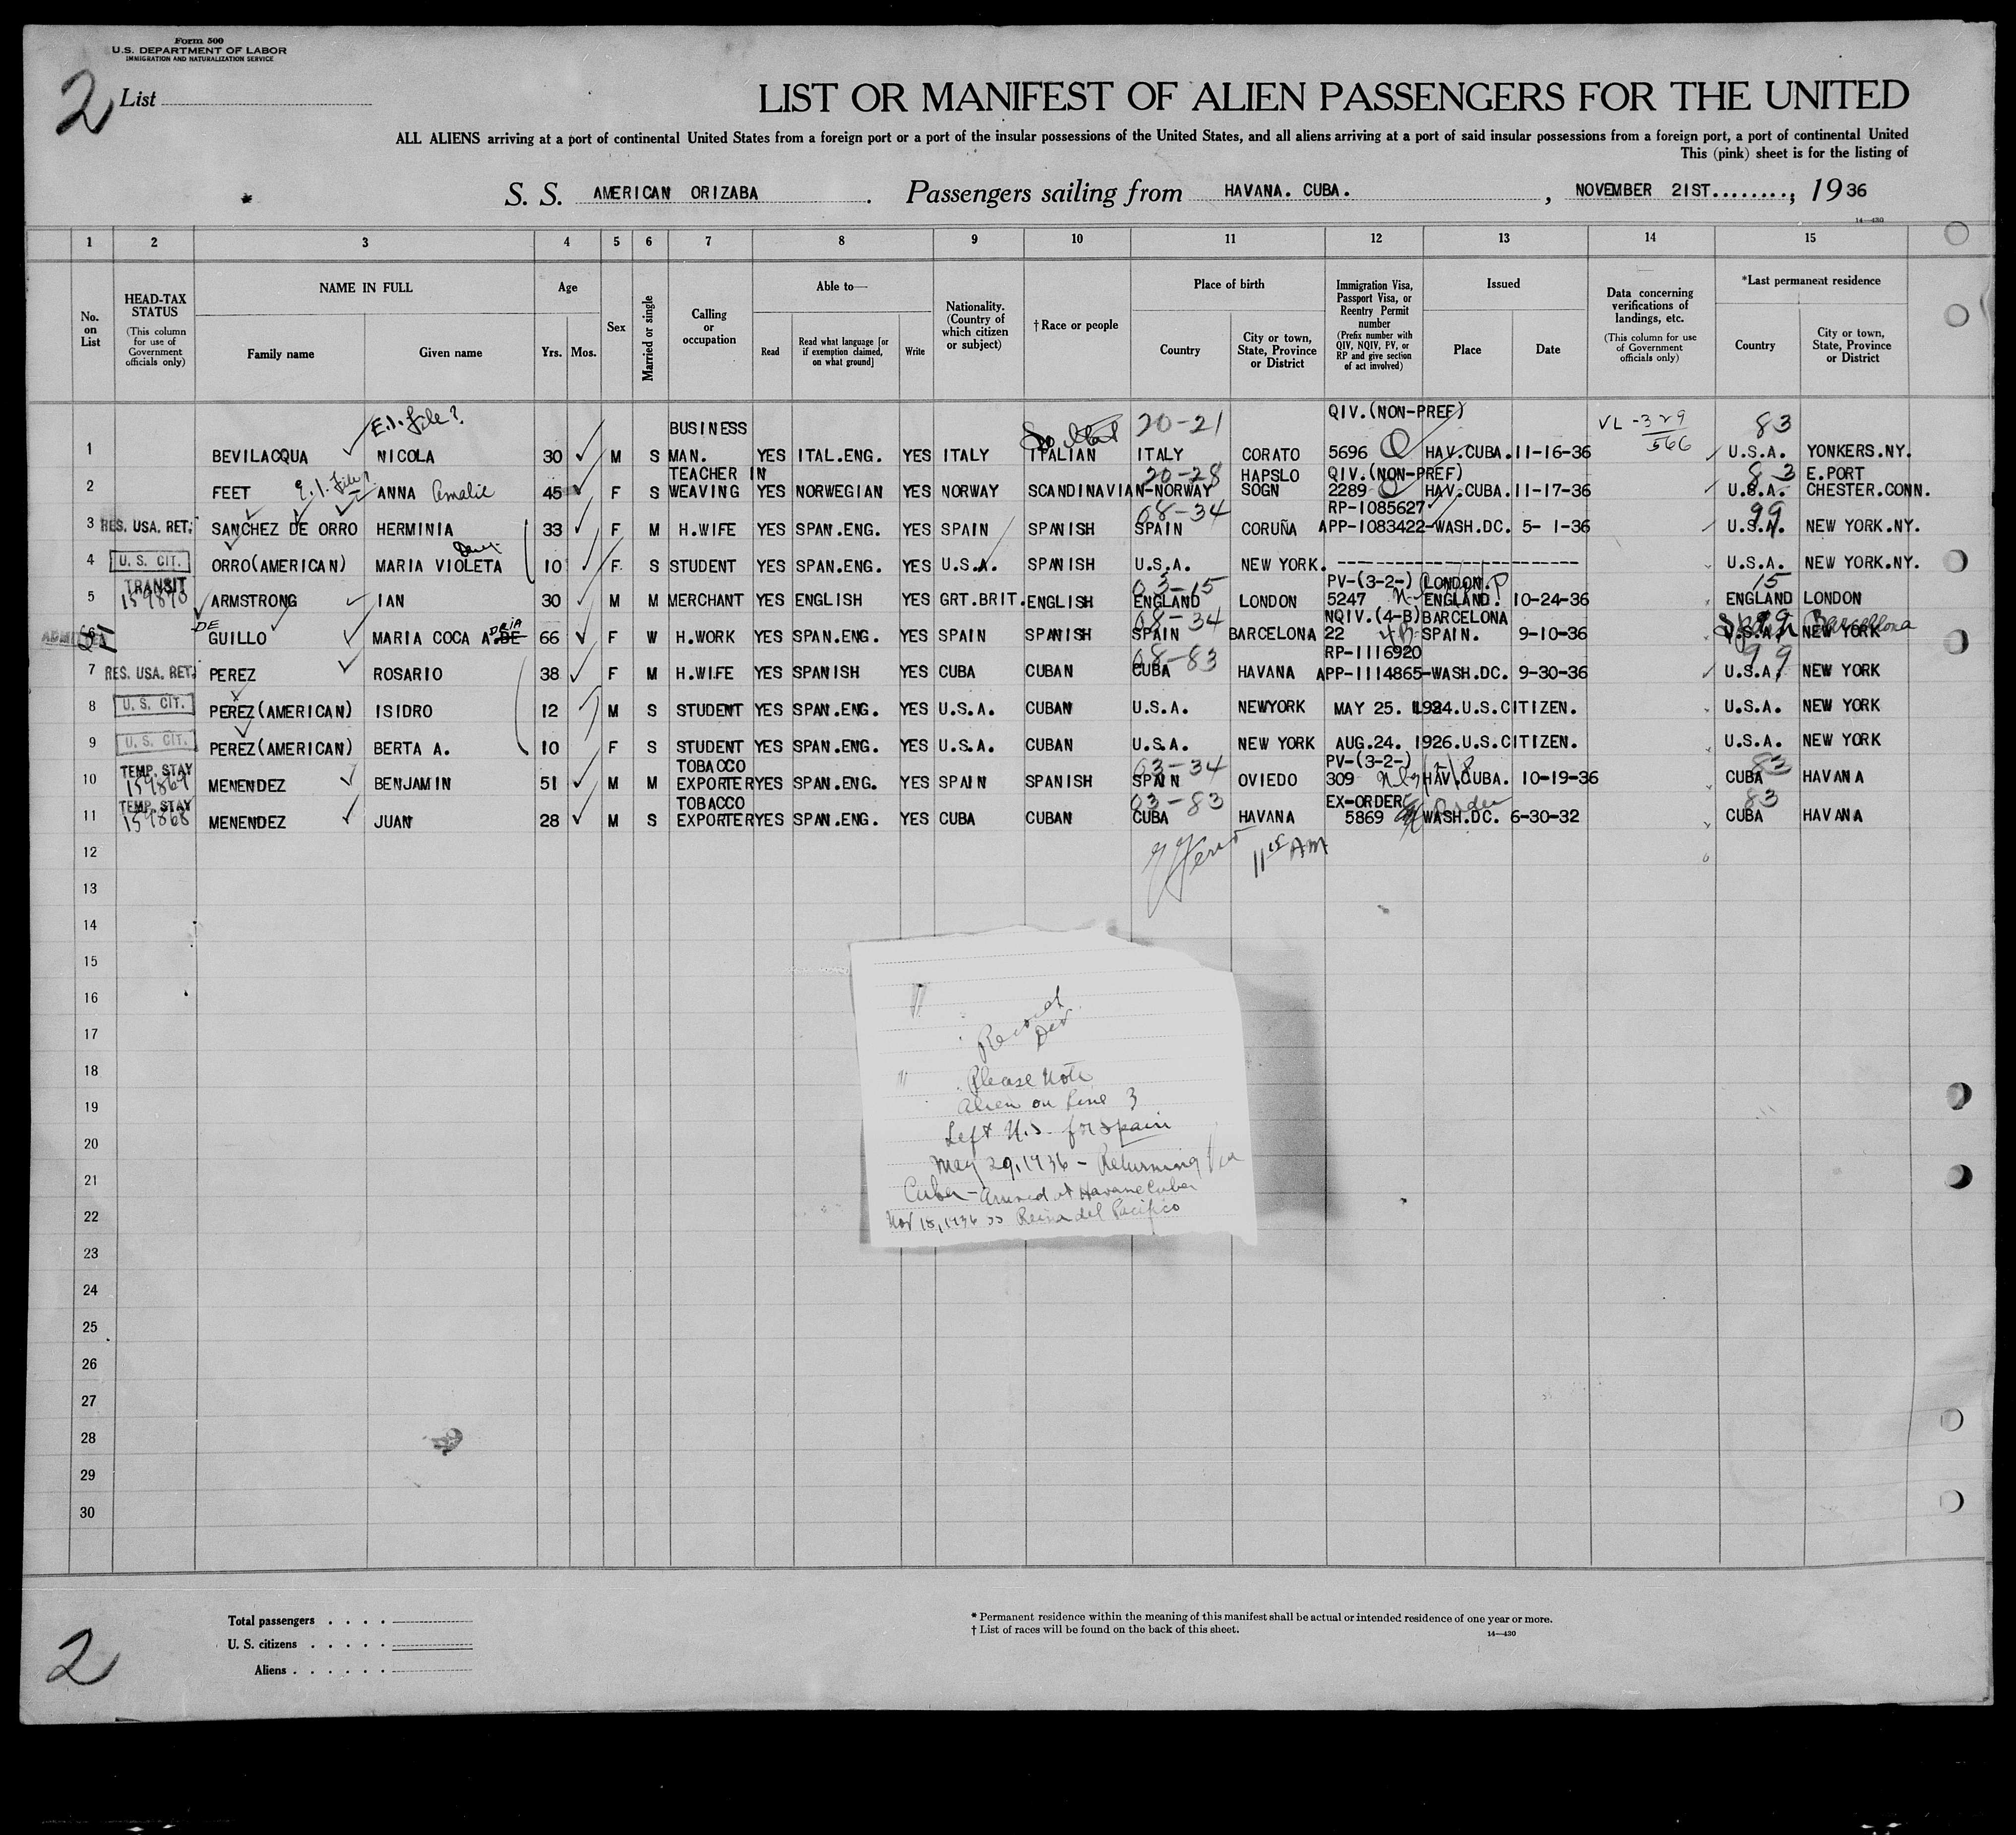 Form 500
U.S. DEPARTMENT OF LABOR
IMMIGRATION AND NATURALIZATION SERVICE
2 List
LIST OR MANIFEST OF ALIEN PASSENGERS FOR THE UNITED
ALL ALIENS arriving at a port of continental United States from a foreign port or a port of the insular possessions of the United States, and all aliens arriving at a port of said insular possessions from a foreign port, a port of continental United
This (pink) sheet is for the listing of
S. S. AMERICAN ORIZABA . Passengers sailing from HAVANA. CUBA. , NOVEMBER 21ST........, 1936
14—430
1 2 3 4 5 6 7 8 9 10 11 12 13 14 15
No. on List
HEAD-TAX STATUS
(This column for use of Government officials only)
NAME IN FULL
Family name Given name
Age
Yrs. Mos.
Sex
Married or single
Calling or occupation
Able to—
Read
Read what language [or if exemption claimed, on what ground]
Write
Nationality. (Country of which citizen or subject)
† Race or people
Place of birth
Country
City or town, State, Province or District
Immigration Visa, Passport Visa, or Reentry Permit number
(Prefix number with QIV, NQIV, PV, or RP and give section of act involved)
Issued
Place Date
Data concerning verifications of landings, etc.
(This column for use of Government officials only)
*Last permanent residence
Country
City or town, State, Province or District
E.I. file? 20-21 QIV.(NON-PREF) VL-329 83
BUSINESS 566
1 BEVILACQUA NICOLA 30 M S MAN. YES ITAL.ENG. YES ITALY ITALIAN ITALY CORATO 5696 HAV.CUBA. 11-16-36 U.S.A. YONKERS.NY.
TEACHER IN 20-28 HAPSLO QIV.(NON-PREF) 83 E.PORT
2 FEET E.I. file? ANNA Amalie 45 F S WEAVING YES NORWEGIAN YES NORWAY SCANDINAVIAN-NORWAY SOGN 2289 HAV.CUBA. 11-17-36 U.S.A. CHESTER.CONN.
08-34 RP-1085627 99
3 RES. USA. RET. SANCHEZ DE ORRO HERMINIA 33 F M H.WIFE YES SPAN.ENG. YES SPAIN SPANISH SPAIN CORUÑA APP-1083422-WASH.DC. 5- 1-36 U.S.A. NEW YORK.NY.
4 U. S. CIT. ORRO(AMERICAN) MARIA VIOLETA 10 F S STUDENT YES SPAN.ENG. YES U.S.A. SPANISH U.S.A. NEW YORK. U.S.A. NEW YORK.NY.
TRANSIT 03-15 PV-(3-2-) LONDON. 15
5 159870 ARMSTRONG IAN 30 M M MERCHANT YES ENGLISH YES GRT.BRIT. ENGLISH ENGLAND LONDON 5247 ENGLAND. 10-24-36 ENGLAND LONDON
DE DRIA 08-34 NQIV.(4-B) BARCELONA 99
ADMITTED 6 GUILLO MARIA COCA A DE 66 F W H.WORK YES SPAN.ENG. YES SPAIN SPANISH SPAIN BARCELONA 22 SPAIN. 9-10-36 U.S.A. Spain NEW YORK Barcellona
08-83 RP-1116920 99
7 RES. USA. RET. PEREZ ROSARIO 38 F M H.WIFE YES SPANISH YES CUBA CUBAN CUBA HAVANA APP-1114865-WASH.DC. 9-30-36 U.S.A. NEW YORK
8 U. S. CIT. PEREZ(AMERICAN) ISIDRO 12 M S STUDENT YES SPAN.ENG. YES U.S.A. CUBAN U.S.A. NEWYORK MAY 25. 1924.U.S.CITIZEN. U.S.A. NEW YORK
9 U. S. CIT. PEREZ(AMERICAN) BERTA A. 10 F S STUDENT YES SPAN.ENG. YES U.S.A. CUBAN U.S.A. NEW YORK AUG.24. 1926.U.S.CITIZEN. U.S.A. NEW YORK
TEMP. STAY TOBACCO 03-34 PV-(3-2-) 83
10 159869 MENENDEZ BENJAMIN 51 M M EXPORTER YES SPAN.ENG. YES SPAIN SPANISH SPAIN OVIEDO 309 HAV.CUBA. 10-19-36 CUBA HAVANA
TEMP. STAY TOBACCO 03-83 EX-ORDER 83
11 159868 MENENDEZ JUAN 28 M S EXPORTER YES SPAN.ENG. YES CUBA CUBAN CUBA HAVANA 5869 WASH.DC. 6-30-32 CUBA HAVANA
12 11 15 AM
13
14
15
16
17
18
19
20
21
22
23
24
25
26
27
28
29
30
Record
Div
Please Note
Alien on line 3
Left U.S. for Spain
May 29, 1936 - Returning Via
Cuba - Arrived at Havana Cuba
Nov 15, 1936 SS Reina del Pacifico
Total passengers . . . .
U. S. citizens . . . . .
Aliens . . . . . .
* Permanent residence within the meaning of this manifest shall be actual or intended residence of one year or more.
† List of races will be found on the back of this sheet.
14—430
2